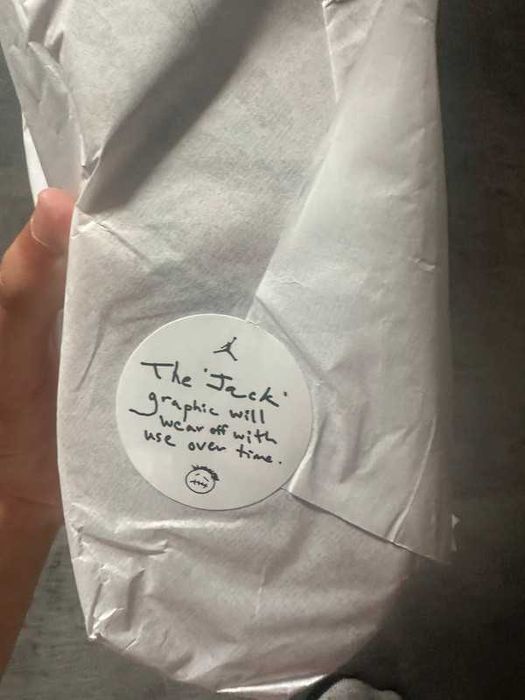 The 'Jack'
graphic will
wear off with
use over time.